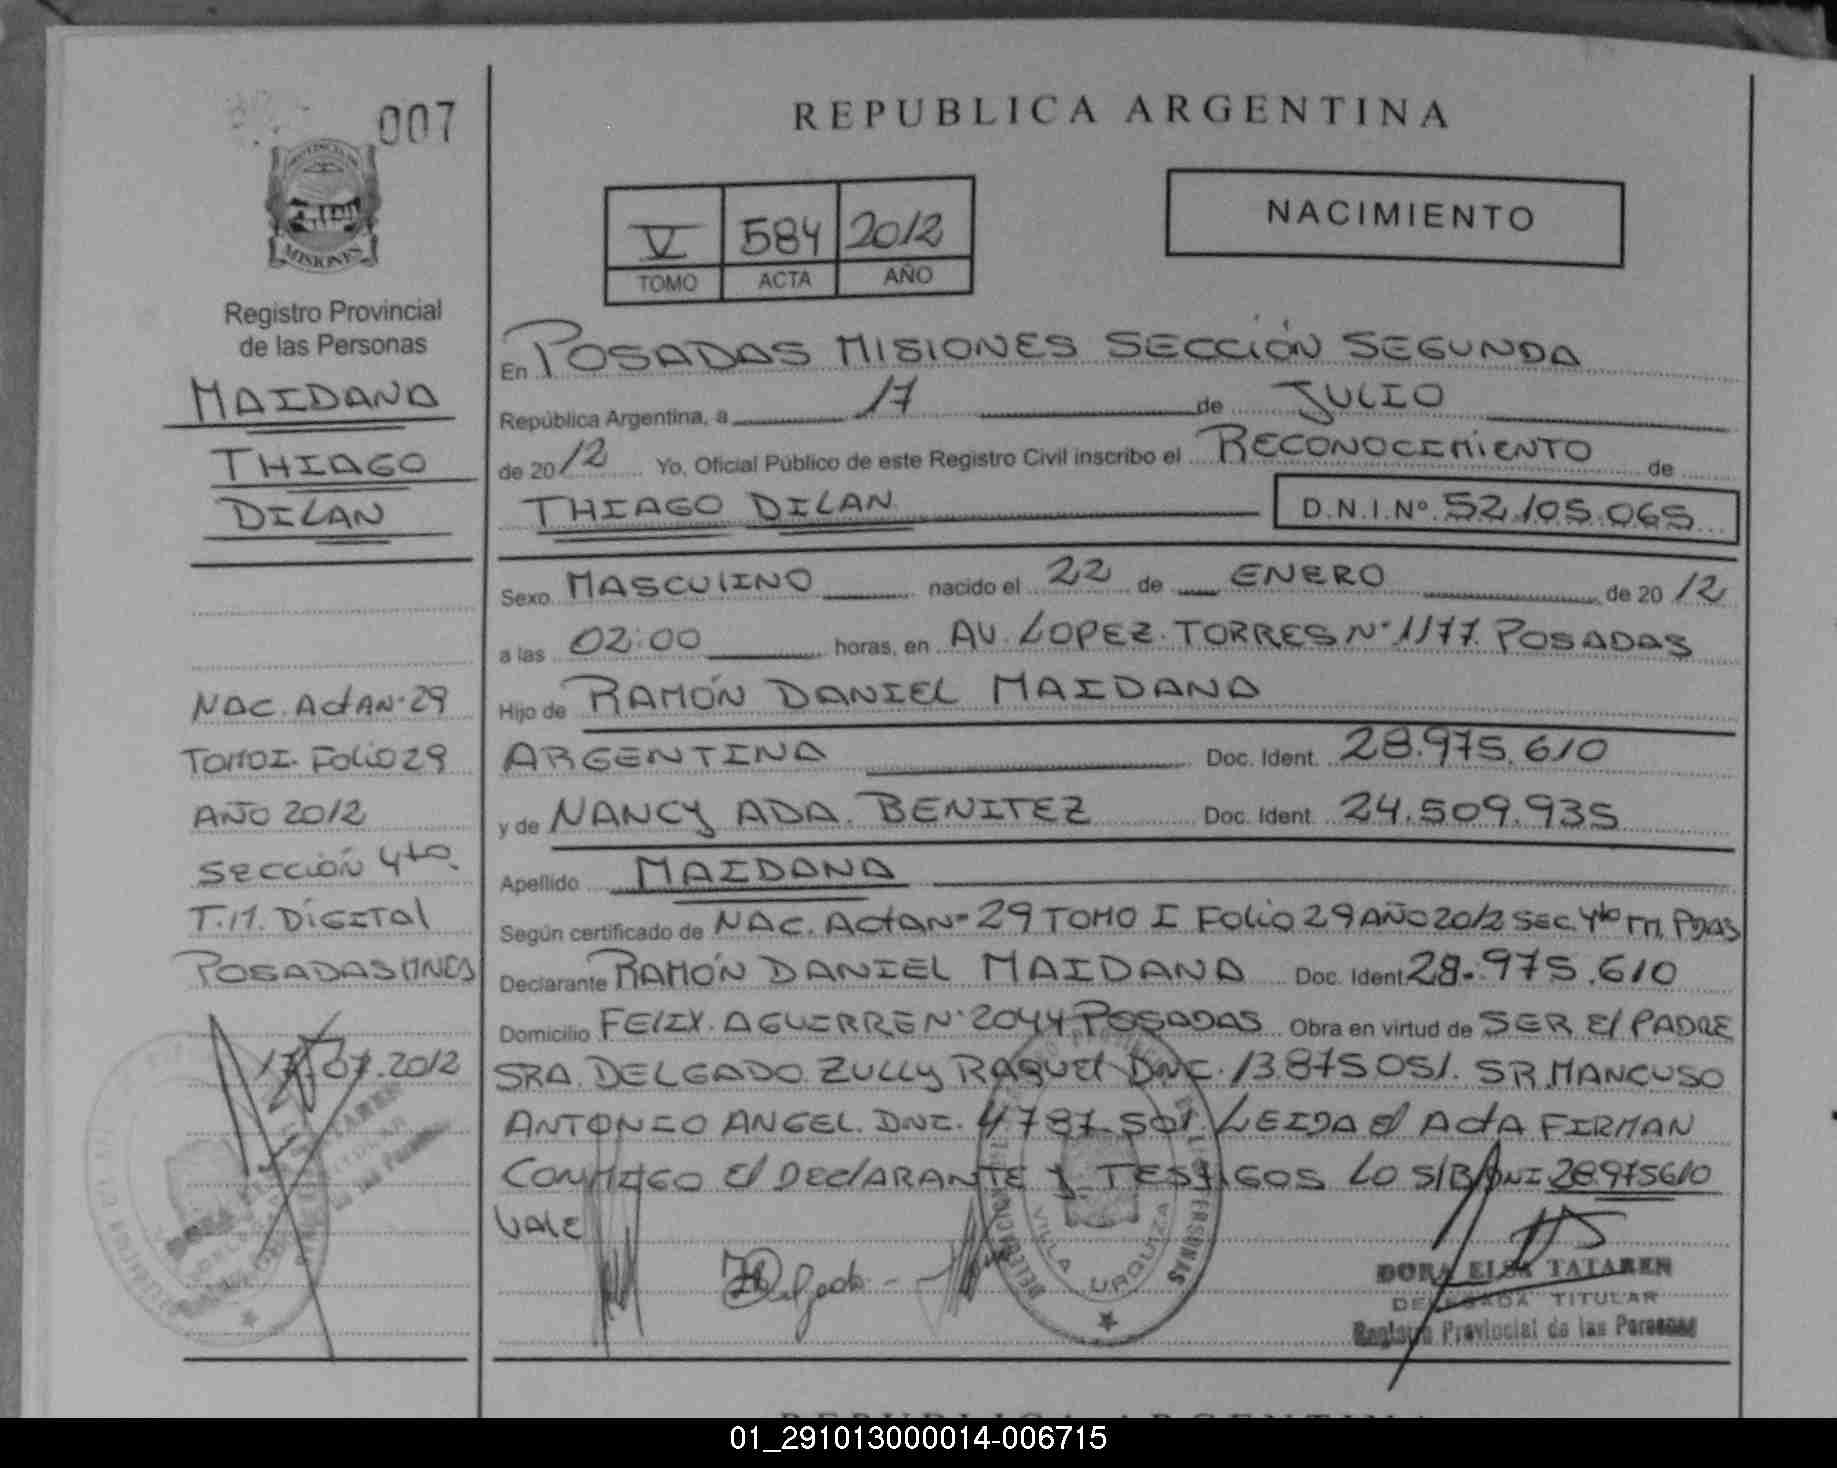 007
MISIONES
Registro Provincial
de las Personas
MAIDANA
THIAGO
DILAN
NAC. ActA Nº 29
TOMO I. FOLIO 29
AÑO 2012
SECCIÓN 4to.
T.M. DIGITAL
POSADAS MNES
17.07.2012
REPUBLICA ARGENTINA
V 584 2012
TOMO ACTA AÑO
NACIMIENTO
En POSADAS MISIONES SECCIÓN SEGUNDA
República Argentina, a 17 de JULIO
de 2012 Yo, Oficial Público de este Registro Civil inscribo el RECONOCIMIENTO de
THIAGO DILAN D.N.I.Nº 52.105.065
Sexo MASCULINO nacido el 22 de ENERO de 2012
a las 02:00 horas, en AV. LOPEZ. TORRES Nº 1177. POSADAS
Hijo de RAMÓN DANIEL MAIDANA
ARGENTINA Doc. Ident. 28.975.610
y de NANCY ADA. BENITEZ Doc. Ident. 24.509.935
Apellido MAIDANA
Según certificado de NAC. ActA Nº 29 TOMO I FOLIO 29 AÑO 2012 SEC. 4to TM. PDAS
Declarante RAMÓN DANIEL MAIDANA Doc. Ident. 28.975.610
Domicilio FELIX. AGUIRRE Nº 2044 POSADAS Obra en virtud de SER El PADRE
SRA. DELGADO ZULLY RAQUEl DNI. 13.875.051. SR MANCUSO
ANTONIO ANGEL. DNI. 4787 LEIDA El ActA FIRMAN
CONMIGO El DEClARANTE Y TESTIGOS LO S/B/DNI 28.975610
VALE
Delgado
VILLA URQUIZA
DORA ELSA TATAREN
DELEGADA TITULAR
Registro Provincial de las Personas
REPUBLICA ARGENTINA
01_291013000014-006715